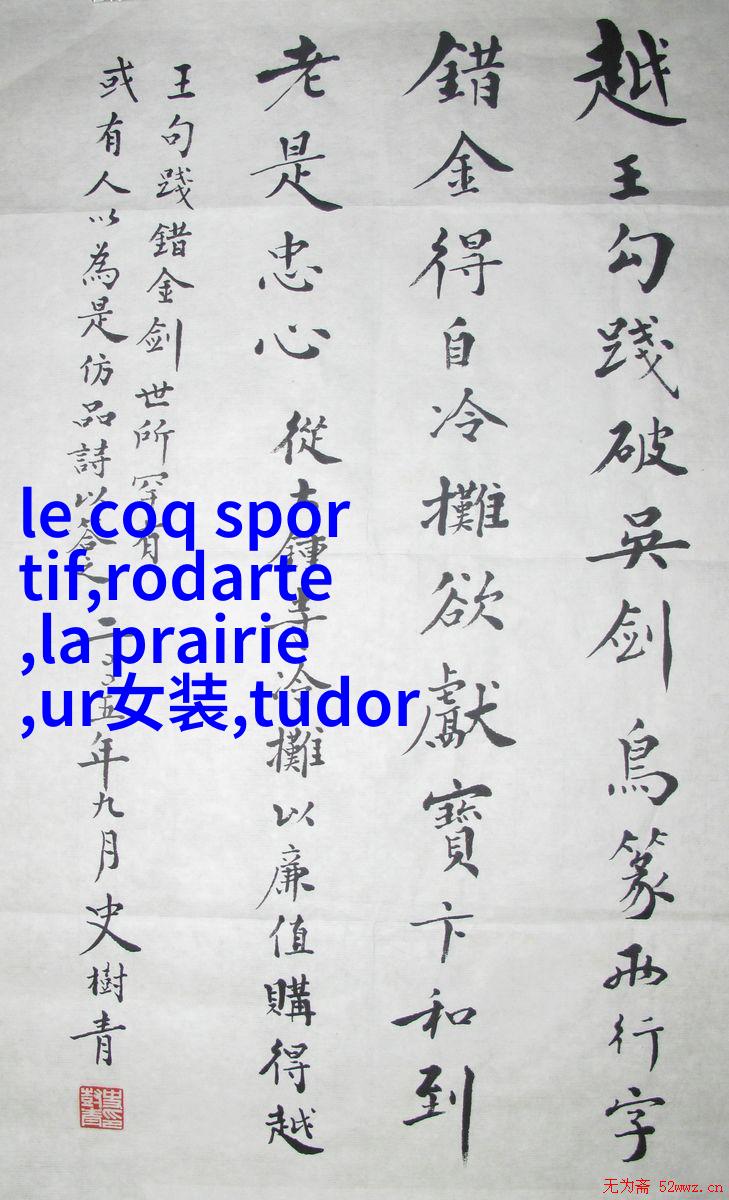 越王勾踐破吳剑鳥篆兩行字
錯金得自冷攤欲獻寶卞和到
老是忠心 從大鍾寺冷攤以廉值購得越
王句踐錯金剑世所罕有
或有人以為是仿品詩以 二〇〇五年九月史樹青
le coq spor
tif,rodarte
,la prairie
,ur女装,tudor
无为斋 52wwz.cn